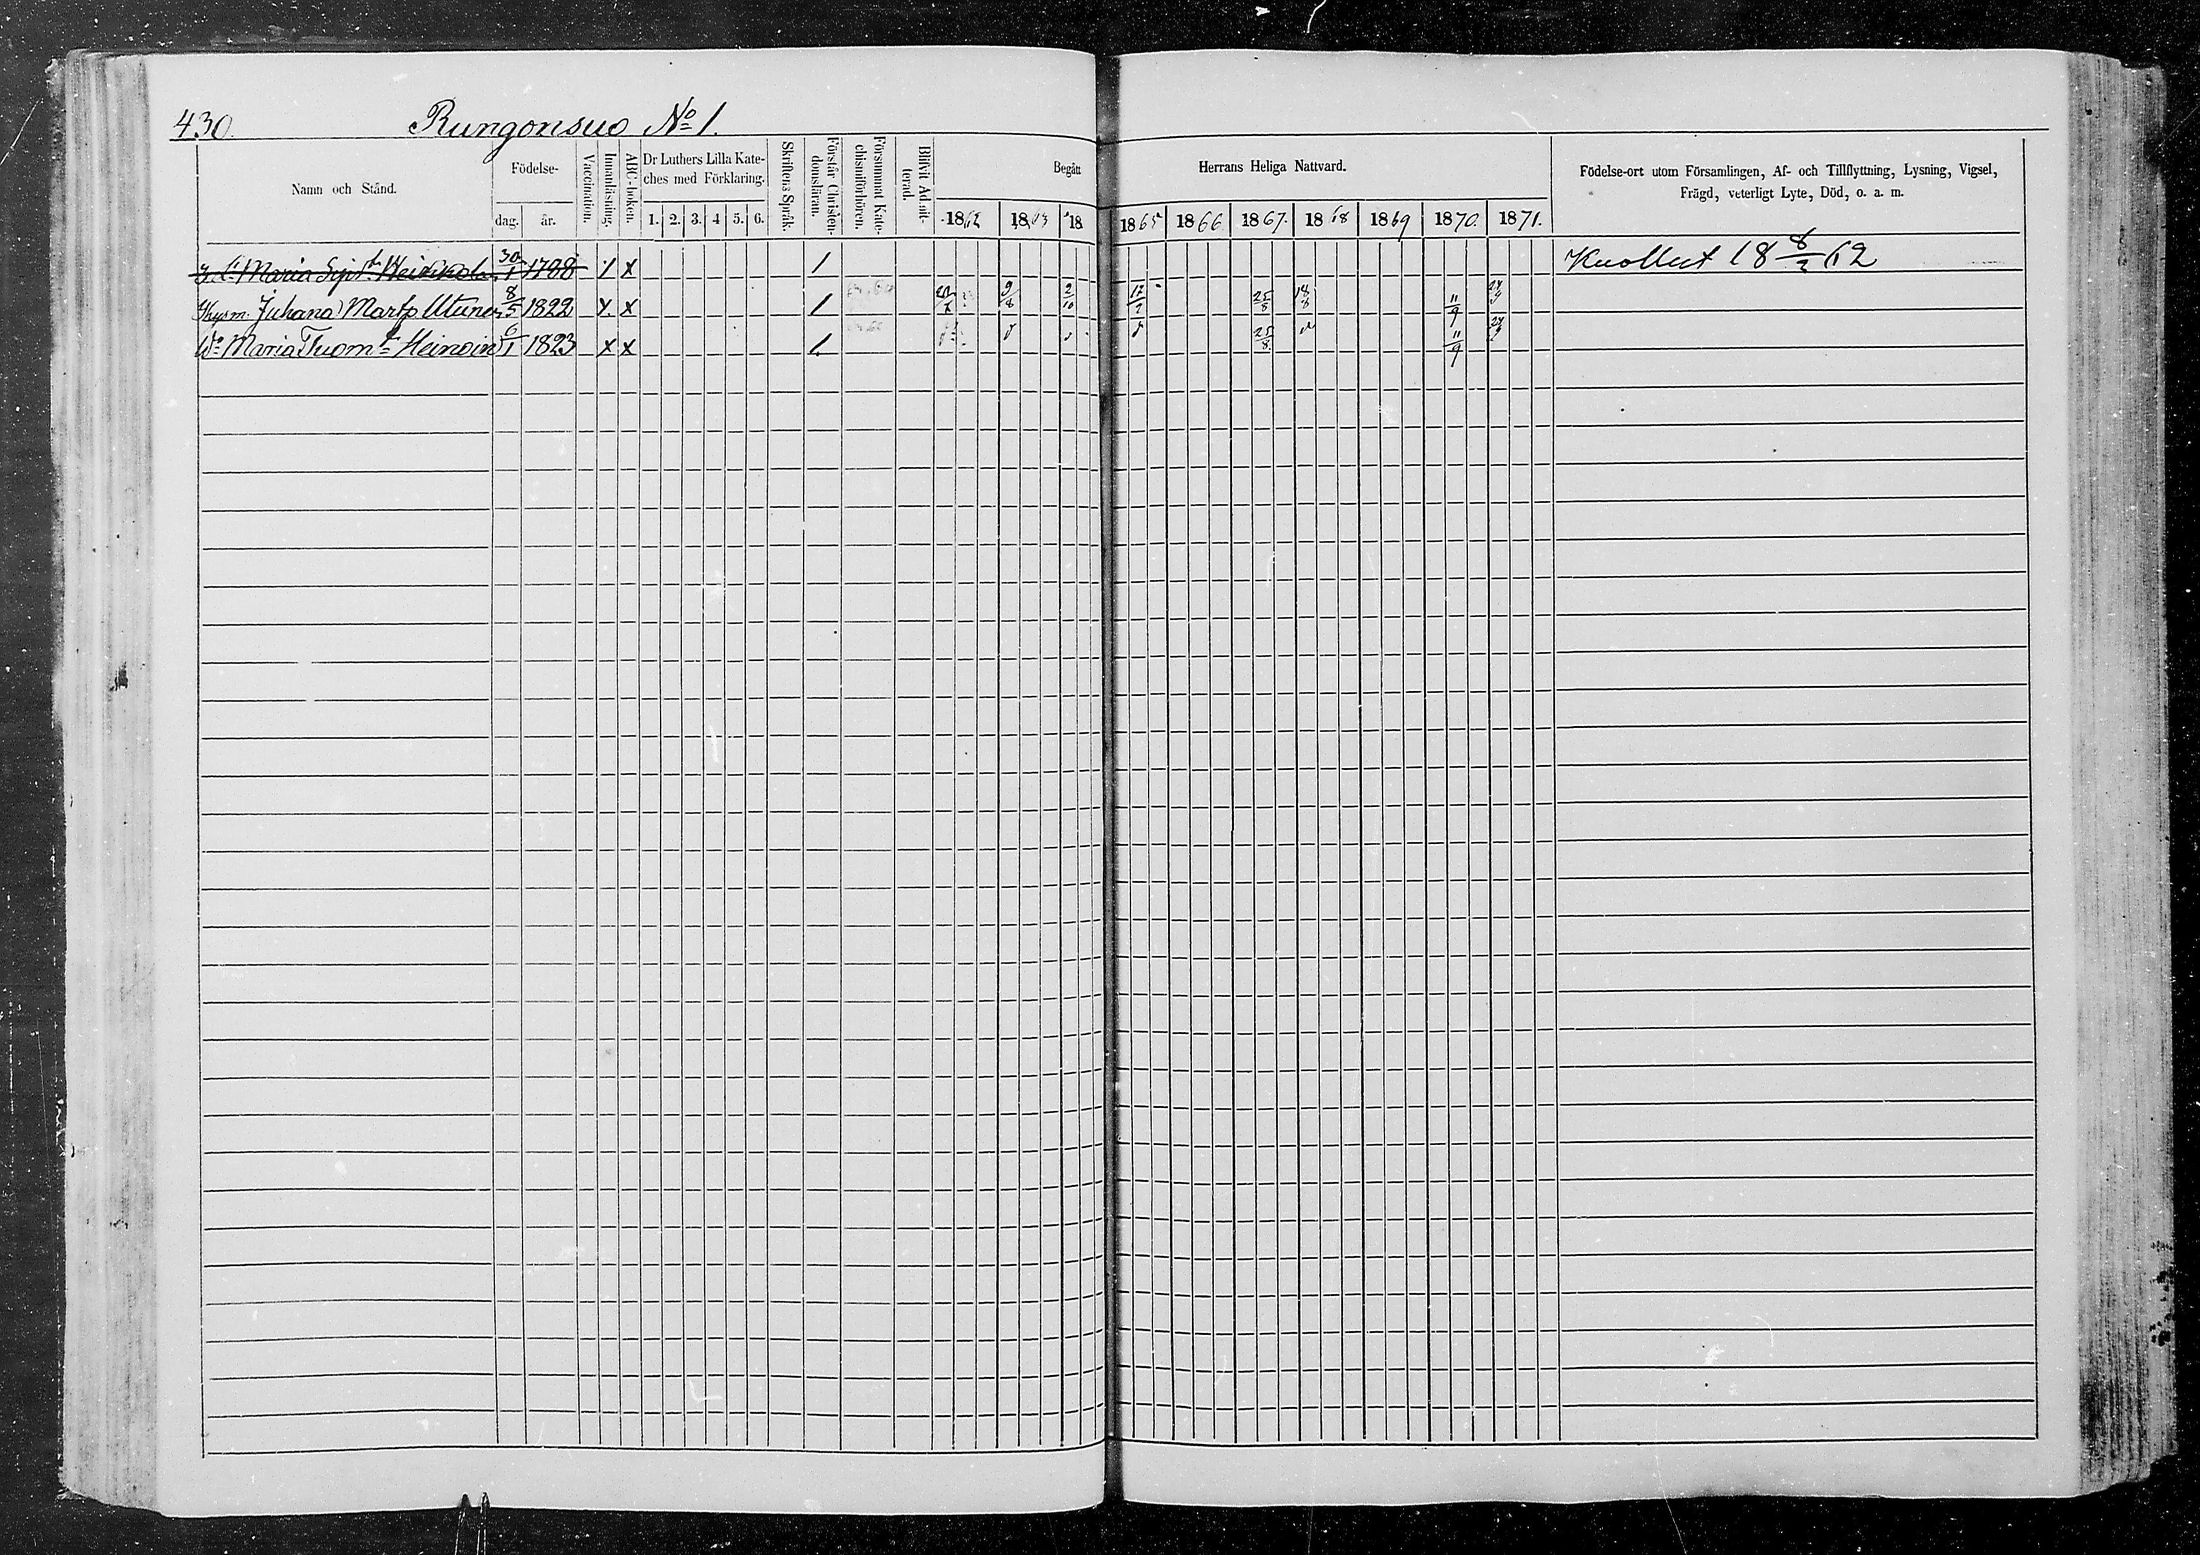 430 Rungonsuo No 1.
Namn och Stånd.
Födelse-
dag. år.
Vaccination.
Innanläsning.
ABC-boken.
Dr Luthers Lilla Kate-
ches med Förklaring.
1. 2. 3. 4 5. 6.
Skriftens Språk.
Förstår Christen-
domsläran.
Försummat Kate-
chismiförhören.
Blifvit Admit-
terad.
Begått Herrans Heliga Nattvard.
1862 1863 18 1865 1866 1867. 1868 1869 1870. 1871.
Födelse-ort utom Församlingen, Af- och Tillflyttning, Lysning, Vigsel,
Frägd, veterligt Lyte, Död, o. a. m.
Maria 30/1 1788 / x / Kuollut 18 8/3 62
Juhana 8/5 1822 x x / 9/8 2/10 25/8 18/8 11/9
Maria 6/1 1823 x x / 25/8 11/9